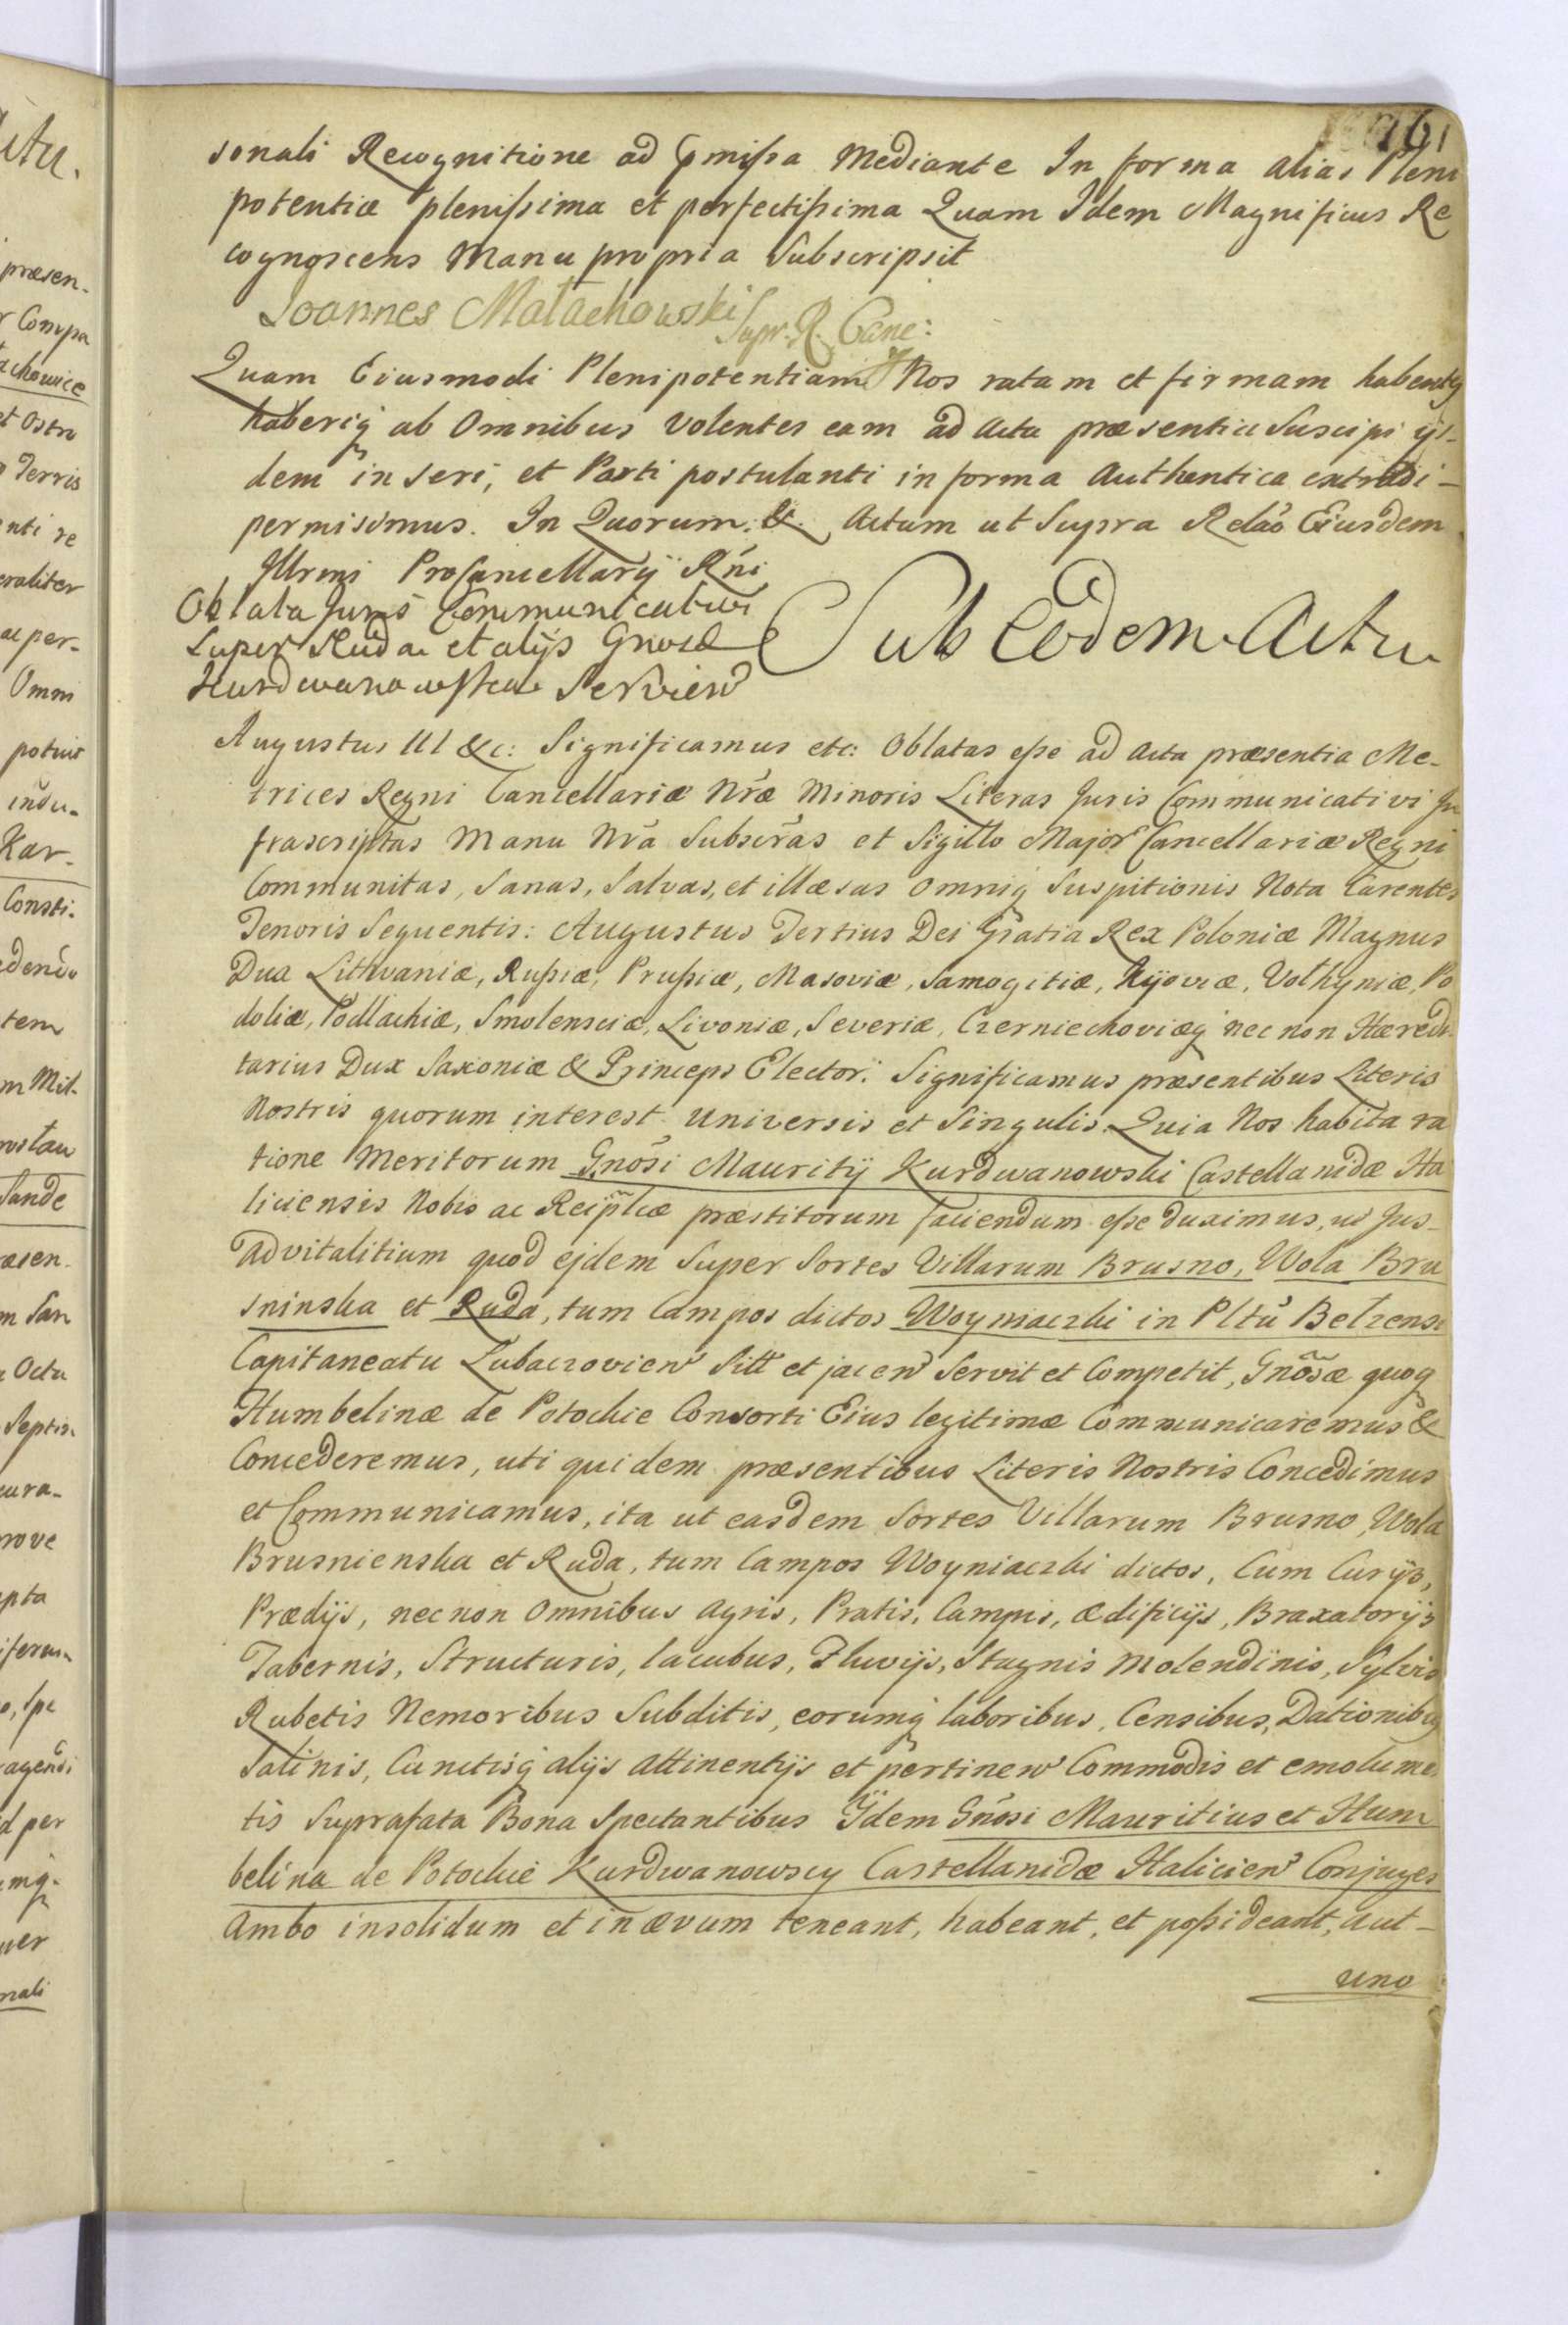 161
sonali Recognitione ad pmissa Mediante In forma alias Pleni
potentiæ plenissima et perfectissima Quam Idem Magnificus Re
cognoscens Manu propria Subscripsit
Joannes Małachowski Supr. R. Canc:
Quam Eiusmodi Plenipotentiam Nos ratam et firmam habentes
haberiq ab Omnibus Volentes eam ad Acta præsentia Suscipi ijs-
dem inseri, et Parti postulanti in forma Authentica extradi-
permisimus. In Quorum. &. Actum ut Supra Relaõ Eiusdem
Illrmi ProCancellarij Rñi
Oblata Juris Communicativi
Super Ruda et alijs Gnosæ
Kurdwanowskæ Servien
Sub Eodem Actu
Augustus III &c: Significamus etc: Oblatas esse ad Acta præsentia Me-
trices Regni Cancellariæ Nræ Minoris Literas Juris Communicativi In
frascriptas Manu Nrã Subscras et Sigillo Major Cancellariæ Regni
Communitas, Sanas, Salvas, et illæsas Omniq Suspitionis Nota Carentes
Tenoris Sequentis: Augustus Tertius Dei Gratia Rex Poloniæ Magnus
Dux Lithvaniæ, Russiæ, Prussiæ, Masoviæ, Samogitiæ, Kijoviæ, Volhyniæ, Po
doliæ, Podlachiæ, Smolensciæ, Livoniæ, Severiæ, Czerniechoviæq nec non Hæredi
tarius Dux Saxoniæ & Princeps Elector. Significamus præsentibus Literis
Nostris quorum interest universis et Singulis. Quia Nos habita ra
tione Meritorum Gnosi Mauritij Kurdwanowski Castellanidæ Ha
liciensis Nobis ac Reiplcæ præstitorum faciendum esse duximus, ut Jus-
advitalitium quod ejdem Super Sortes Villarum Brusno, Wola Bru
sninska et Ruda, tum Campos dictos Woyniaczki in Pltu Belzensi
Capitaneatu Lubaczovien Sitt et jacen Servit et Competit, Gnosæ quoq
Humbelinæ de Potockie Consorti Eius legitimæ Communicaremus &
Concederemus, uti quidem præsentibus Literis Nostris Concedimus
et Communicamus, ita ut easdem Sortes Villarum Brusno, Wola
Brusnienska et Ruda, tum Campos Woyniaczki dictos, Cum Curijs,
Prædijs, nec non Omnibus Agris, Pratis, Campis, ædificijs, Braxatorijs
Tabernis, Structuris, lacubus, Fluvijs, Stagnis Molendinis, Sylvis
Rubetis Nemoribus Subditis, eorumq laboribus, Censibus, Dationibus
Salinis, Cunctisq alijs attinentijs et pertinen Commodis et emolumen
tis Suprafata Bona Spectantibus Ijdem Gnosi Mauritius et Hum
belina de Potockie Kurdwanowscy Castellanidæ Halicien Conjuges
Ambo insolidum et in ævum teneant, habeant, et possideant, aut-
uno